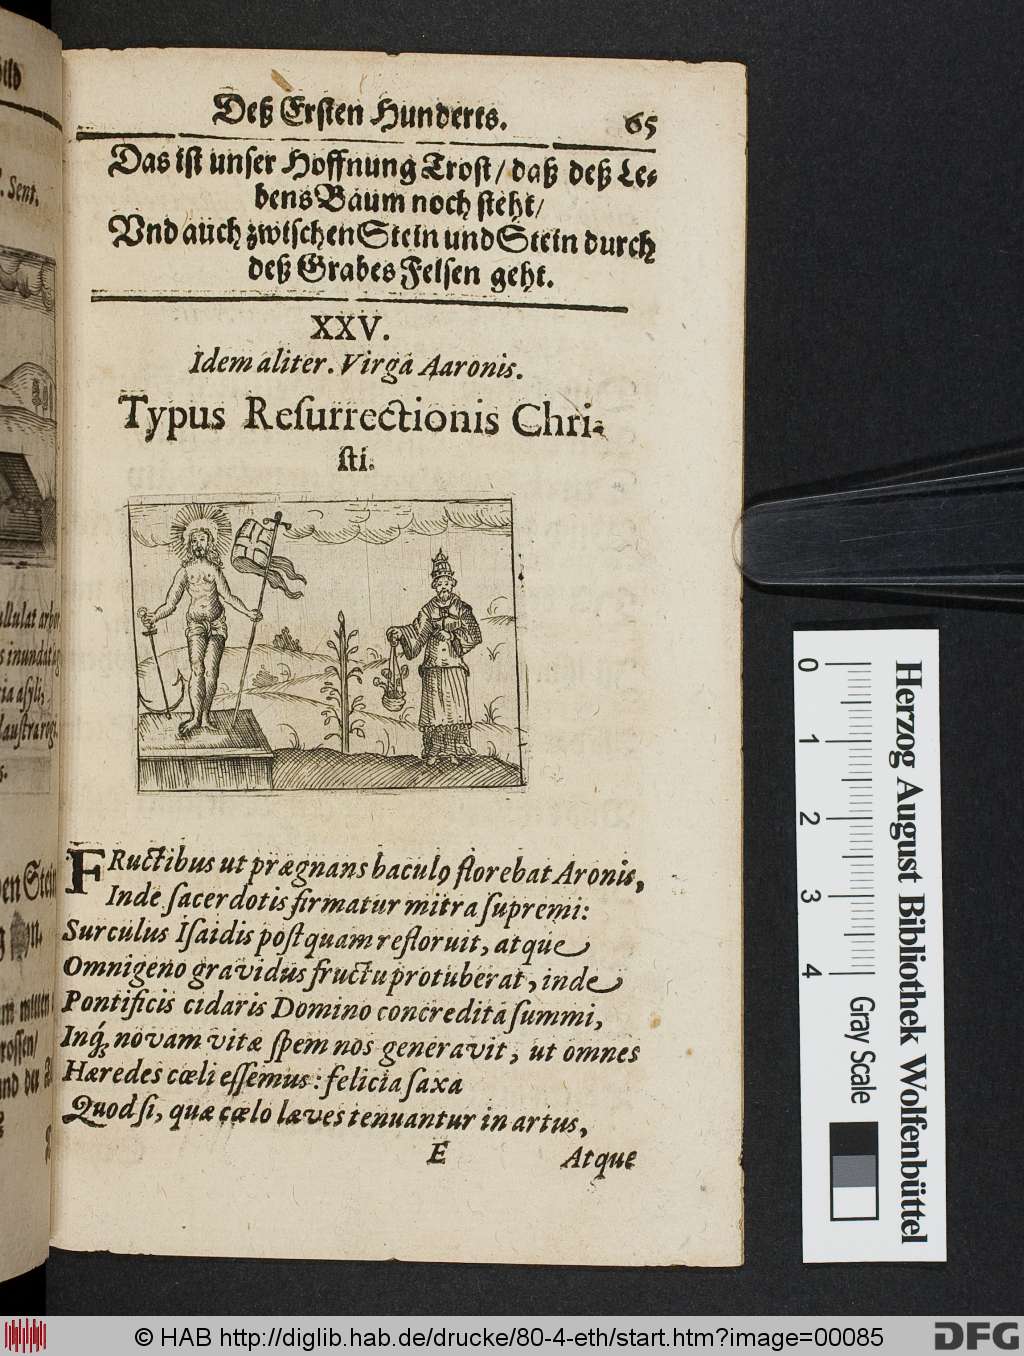 Deß Ersten Hunderts. 65
Das ist unser Hoffnung Trost / daß deß Le-
bens Baum noch steht /
Vnd auch zwischen Stein und Stein durch
deß Grabes Felsen geht.
XXV.
Idem aliter. Virga Aaronis.
Typus Reſurrectionis Chri-
ſti.
FRuctibus ut prægnans baculꝰ florebat Aronis,
Inde ſacerdotis firmatur mitra ſupremi:
Surculus Iſaidis poſtquam refloruit, atque
Omnigeno gravidus fructu protuberat, inde
Pontificis cidaris Domino concredita ſummi,
Inq́; novam vitæ ſpem nos generavit, ut omnes
Hæredes cœli eſſemus: felicia ſaxa
Quod ſi, quæ cœlo læves tenuantur in artus,
E Atque
ild
. Sent.
ullulat arbor
s inundat
cia aſyli,
lauſtra
en Stein
um mitten
roſſen/
und der
0 1 2 3 4
Gray Scale
Herzog August Bibliothek Wolfenbüttel
© HAB http://diglib.hab.de/drucke/80-4-eth/start.htm?image=00085
DFG